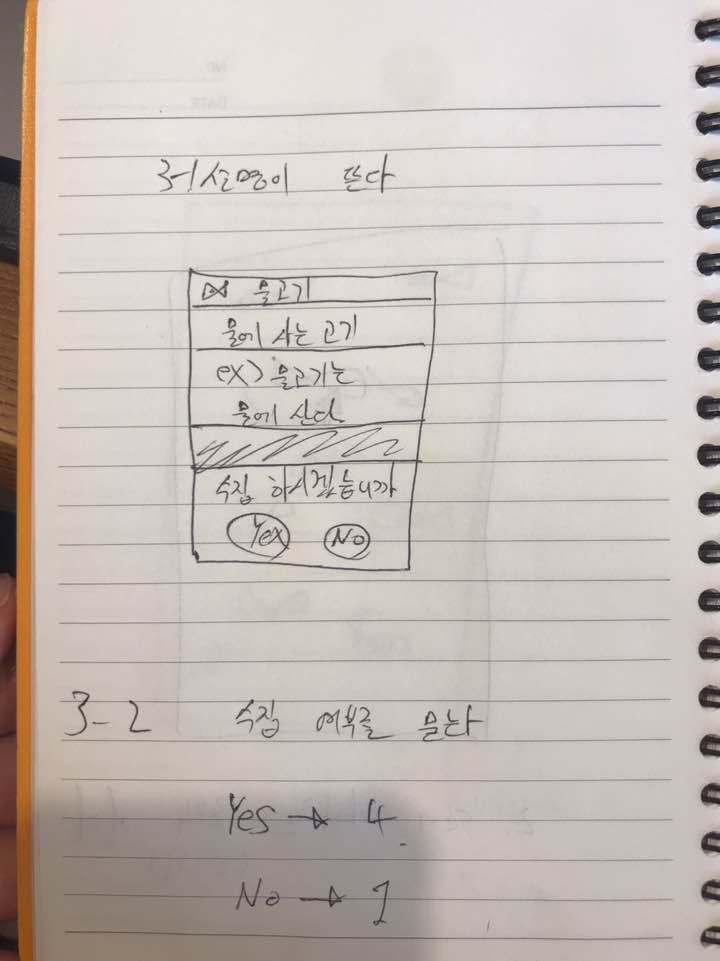 3-1 설명이 뜬다
물고기
물에 사는 고기
ex) 물고기는
물에 산다.
수집 하시겠습니까
Yex No
3-2 수집 여부를 묻는다
Yes → 4.
No → 1